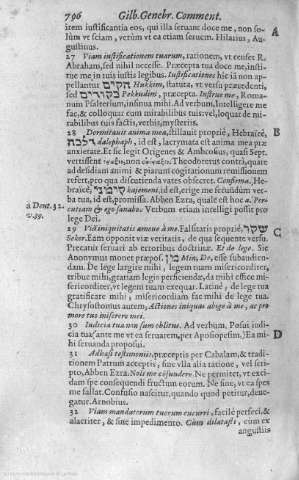 796 Gilb. Genebr. Comment.
item iustificantia eos, qui illa seruant doce me, non so- A
lùm vt sciam, verùm vt ea etiam seruem. Hilarius, Au-
gustinus.
27 Viam iustificationem tuarum, rationem, vt censet R.
Abraham, sed nihil necesse. Præcepta tua doce me, insti-
tue me in tuis iustis legibus. Iustificationes hîc iā non ap-
pellantur חקים Hukkim, statuta, vt versu præcedenti,
sed פקודים Pekkudim, præcepta. Instrue me, Roma-
num Psalterium, insinua mihi. Ad verbum, Intelligere me
fac, & colloquar cum mirabilibus tuis: vel, loquar de mi-
rabilibus tuis factis, verbis, mysteriis.
28 Dormitauit anima mea, stillauit propriè, Hebraicè, B
דלפה dalephaph, id est, lacrymata est anima mea præ
anxietate. Et sic legit Origenes & Ambrosius, quasi Sept.
vertissent non Theodoretus contrà, quare
ad desidiam animi & prauarum cogitationum remissionem
refert, pro qua discutienda vates obsecret. Confirma, He-
braicè, קימני kajemeni, id est, erige me secundùm ver-
ba tua, id est, promissa. Abben Ezra, quale est hoc a. Per-
cutiam & ego sanabo. Verbum etiam intelligi posset pro
lege Dei.
a Deut. 32.
v. 39.
29 Viā iniquitatis amoue à me. Falsitatis propriè, שקר C
Seker. Eam opponit viæ veritatis, de qua sequente versu.
Precatur seruari ab erroribus doctrinæ. Et de lege. Sic
Anonymus monet præpos. מן Min, De, esse subaudien-
dam. De lege largire mihi, legem tuam misericorditer,
tribue mihi, gratiam legis perficiendæ, da mihi ostice mi-
sericorditer, vt legem tuam exequar. Latinè, de lege tua
gratificare mihi, misericordiam fac mihi de lege tua.
Chrysostomus autem, Actiones iniquas abige à me, ac pro
more tuo miserere mei.
30 Iudicia tua non sum oblitus. Ad verbum, Posui iudi- D
cia tua, ante me vt ea seruarem, per Aposiopesim, Ea mi-
hi seruanda proposui.
31 Adhæsi testimoniis, præceptis per Cabalam, & tradi-
tionem Patrum acceptis, sine vlla alia ratione, vel scri-
pto, Abben Ezra. Noli me cōfundere. Ne permitter, vt exci-
dam spe consequendi fructum eorum. Ne sine, vt ea spes
me fallat. Confusio nascitur, quando quod petitur, dene-
gatur. Arnobius.
32 Viam mandatorum tuorum cucurri, facilè perfeci, &
alacriter, & sine impedimento. Cùm dilatasti, cum ex
angustiis